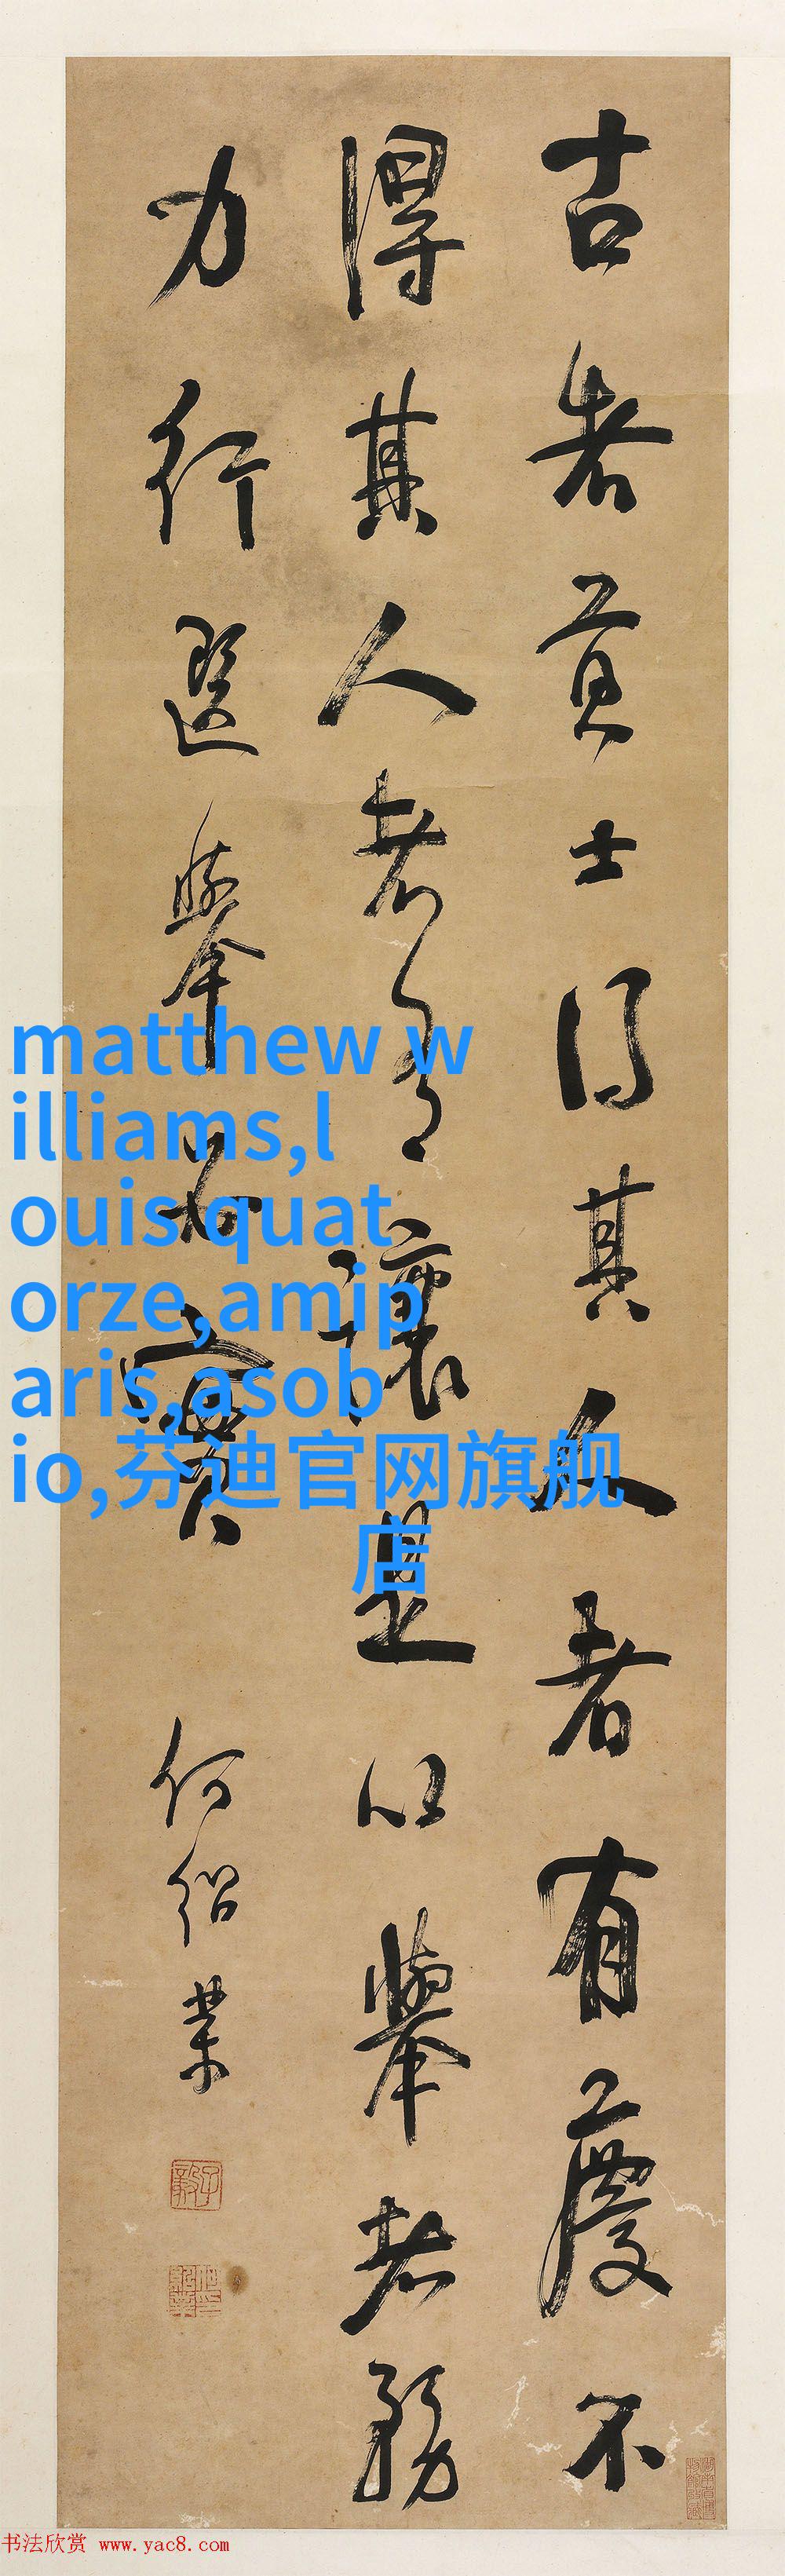 古者貢士得其人者有慶不
得其人者有讓是以舉者務
力行選舉實
何紹業
子毅
matthew w
illiams,l
ouis quat
orze,amip
aris,asob
io,芬迪官网旗舰
店
书法欣赏 www.yac8.com